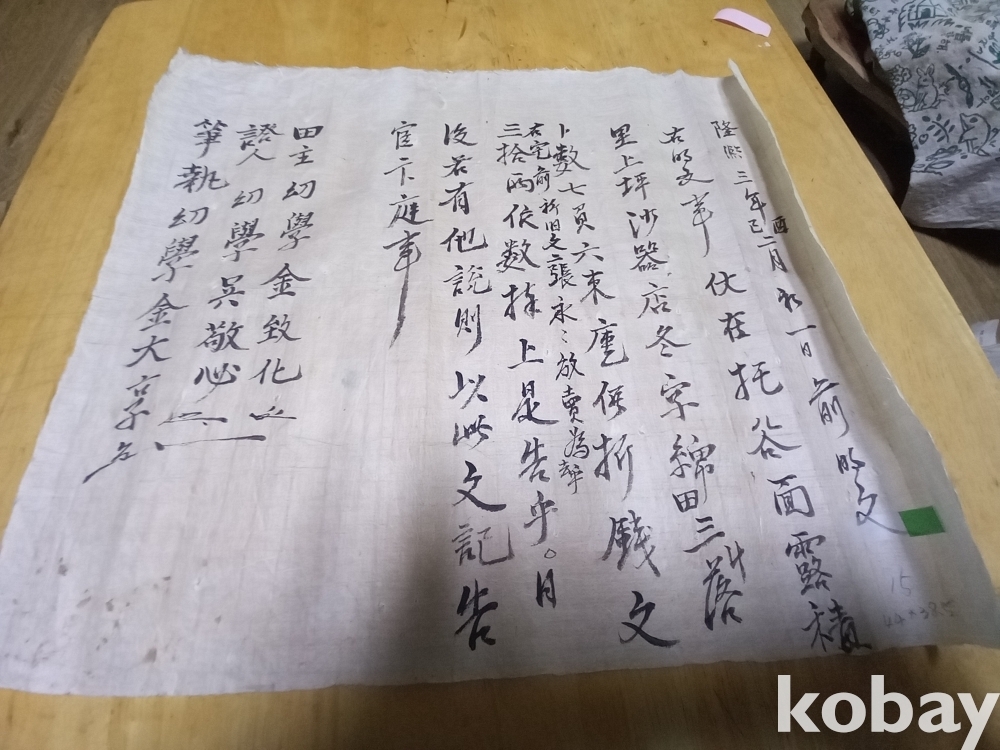 隆熙三年己酉二月初一日 前明文
右明文事 伏在托谷面露積
里上坪沙器店冬字綿田三斗落
卜數七負六束庫価折錢文
右宅前 祈旧文二張永永放賣為去乎
三拾兩依數捧上是告乎。日
後若有他說則以此文記告
官卞庭事
田主 幼學 金致化
證人 幼學 吳敬必
筆執 幼學 金大亨
15
kobay